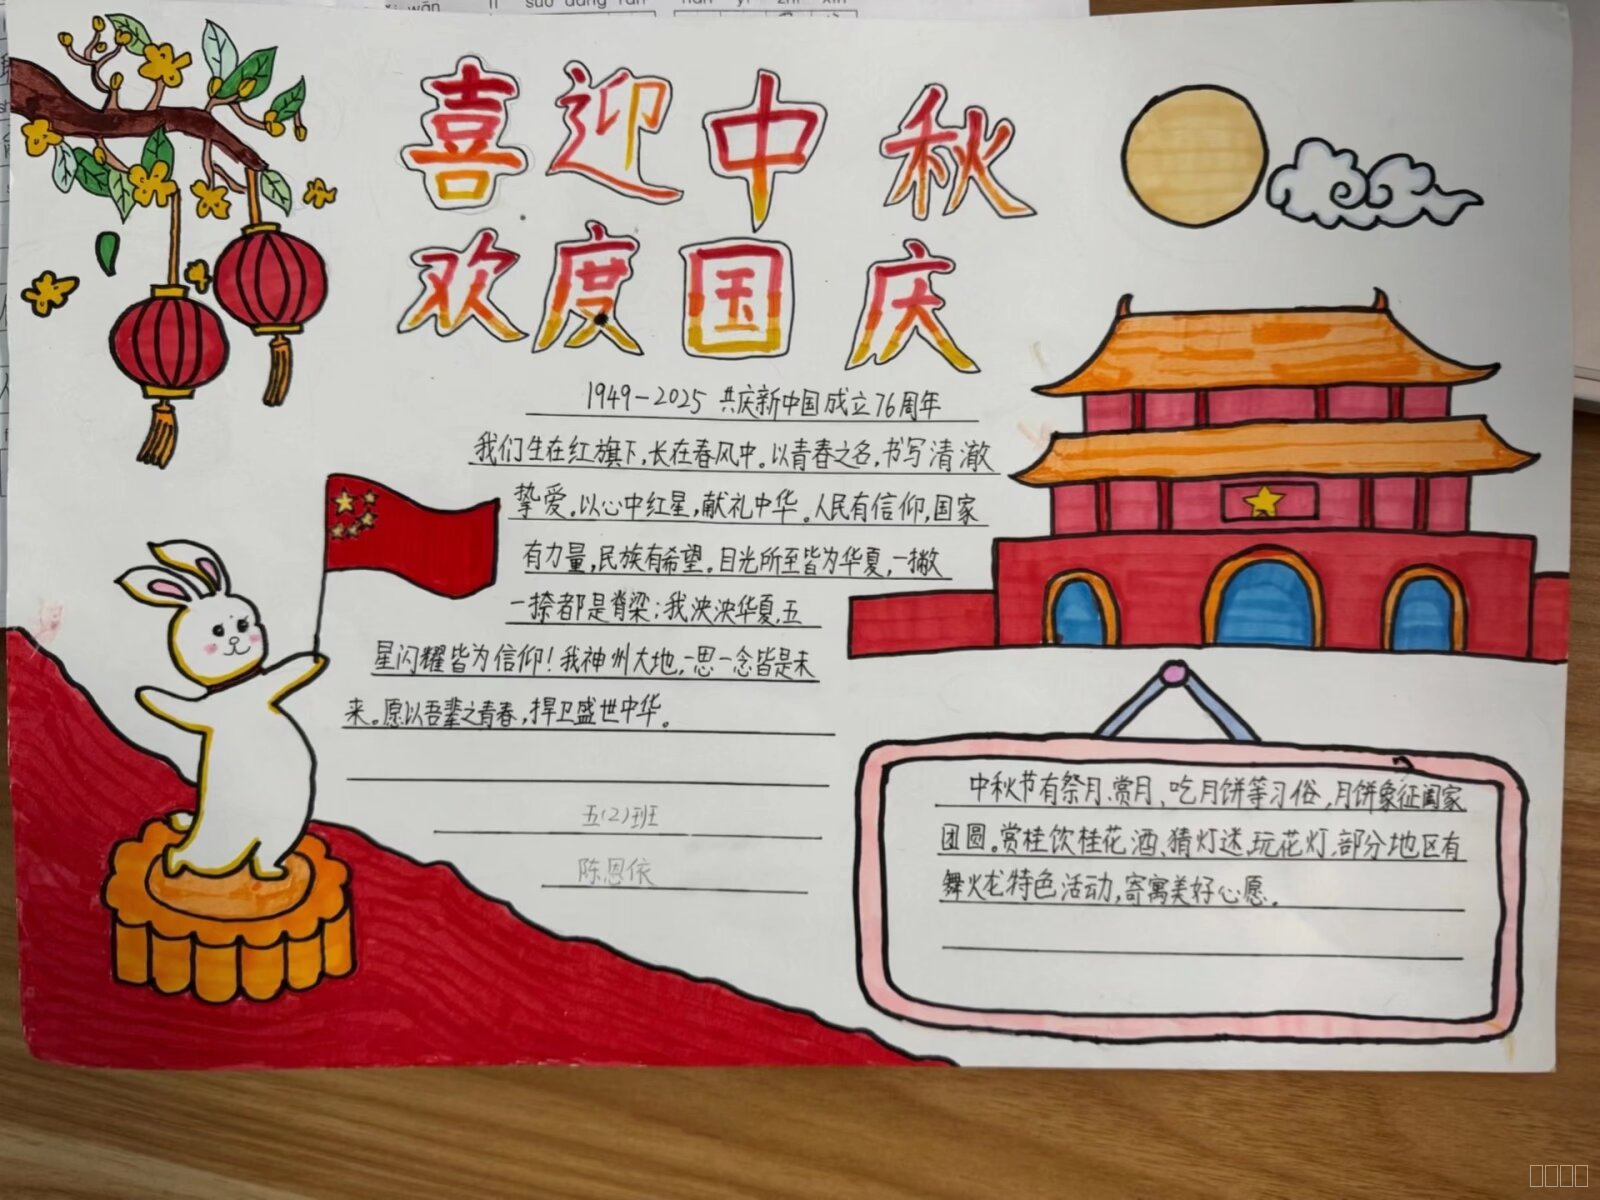 喜迎中秋
欢度国庆
1949-2025 共庆新中国成立76周年
我们生在红旗下,长在春风中。以青春之名,书写清澈
挚爱。以心中红星,献礼中华。人民有信仰,国家
有力量,民族有希望。目光所至皆为华夏,一撇
一捺都是脊梁;我泱泱华夏,五
星闪耀皆为信仰!我神州大地,一思一念皆是未
来。愿以吾辈之青春,捍卫盛世中华。
五(2)班
陈恩依
中秋节有祭月、赏月、吃月饼等习俗,月饼象征阖家
团圆。赏桂饮桂花酒、猜灯迷、玩花灯,部分地区有
舞火龙特色活动,寄寓美好心愿。